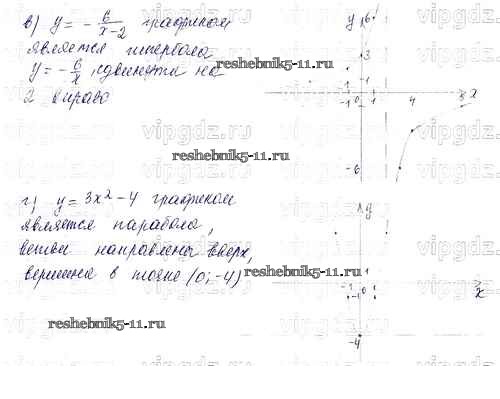 в) y = - 6/(x-2) графиком
является гипербола
y = - 6/x, сдвинутая на
2 вправо
г) y = 3x² - 4 графиком
является парабола,
ветви направлены вверх,
вершина в точке (0; -4)
y 6
3
1
-1 0 1 4 8 x
-1
-6
y
1
-1 0 1 x
-1
-4
reshebnik5-11.ru
reshebnik5-11.ru
reshebnik5-11.ru
reshebnik5-11.ru
vipgdz.ru